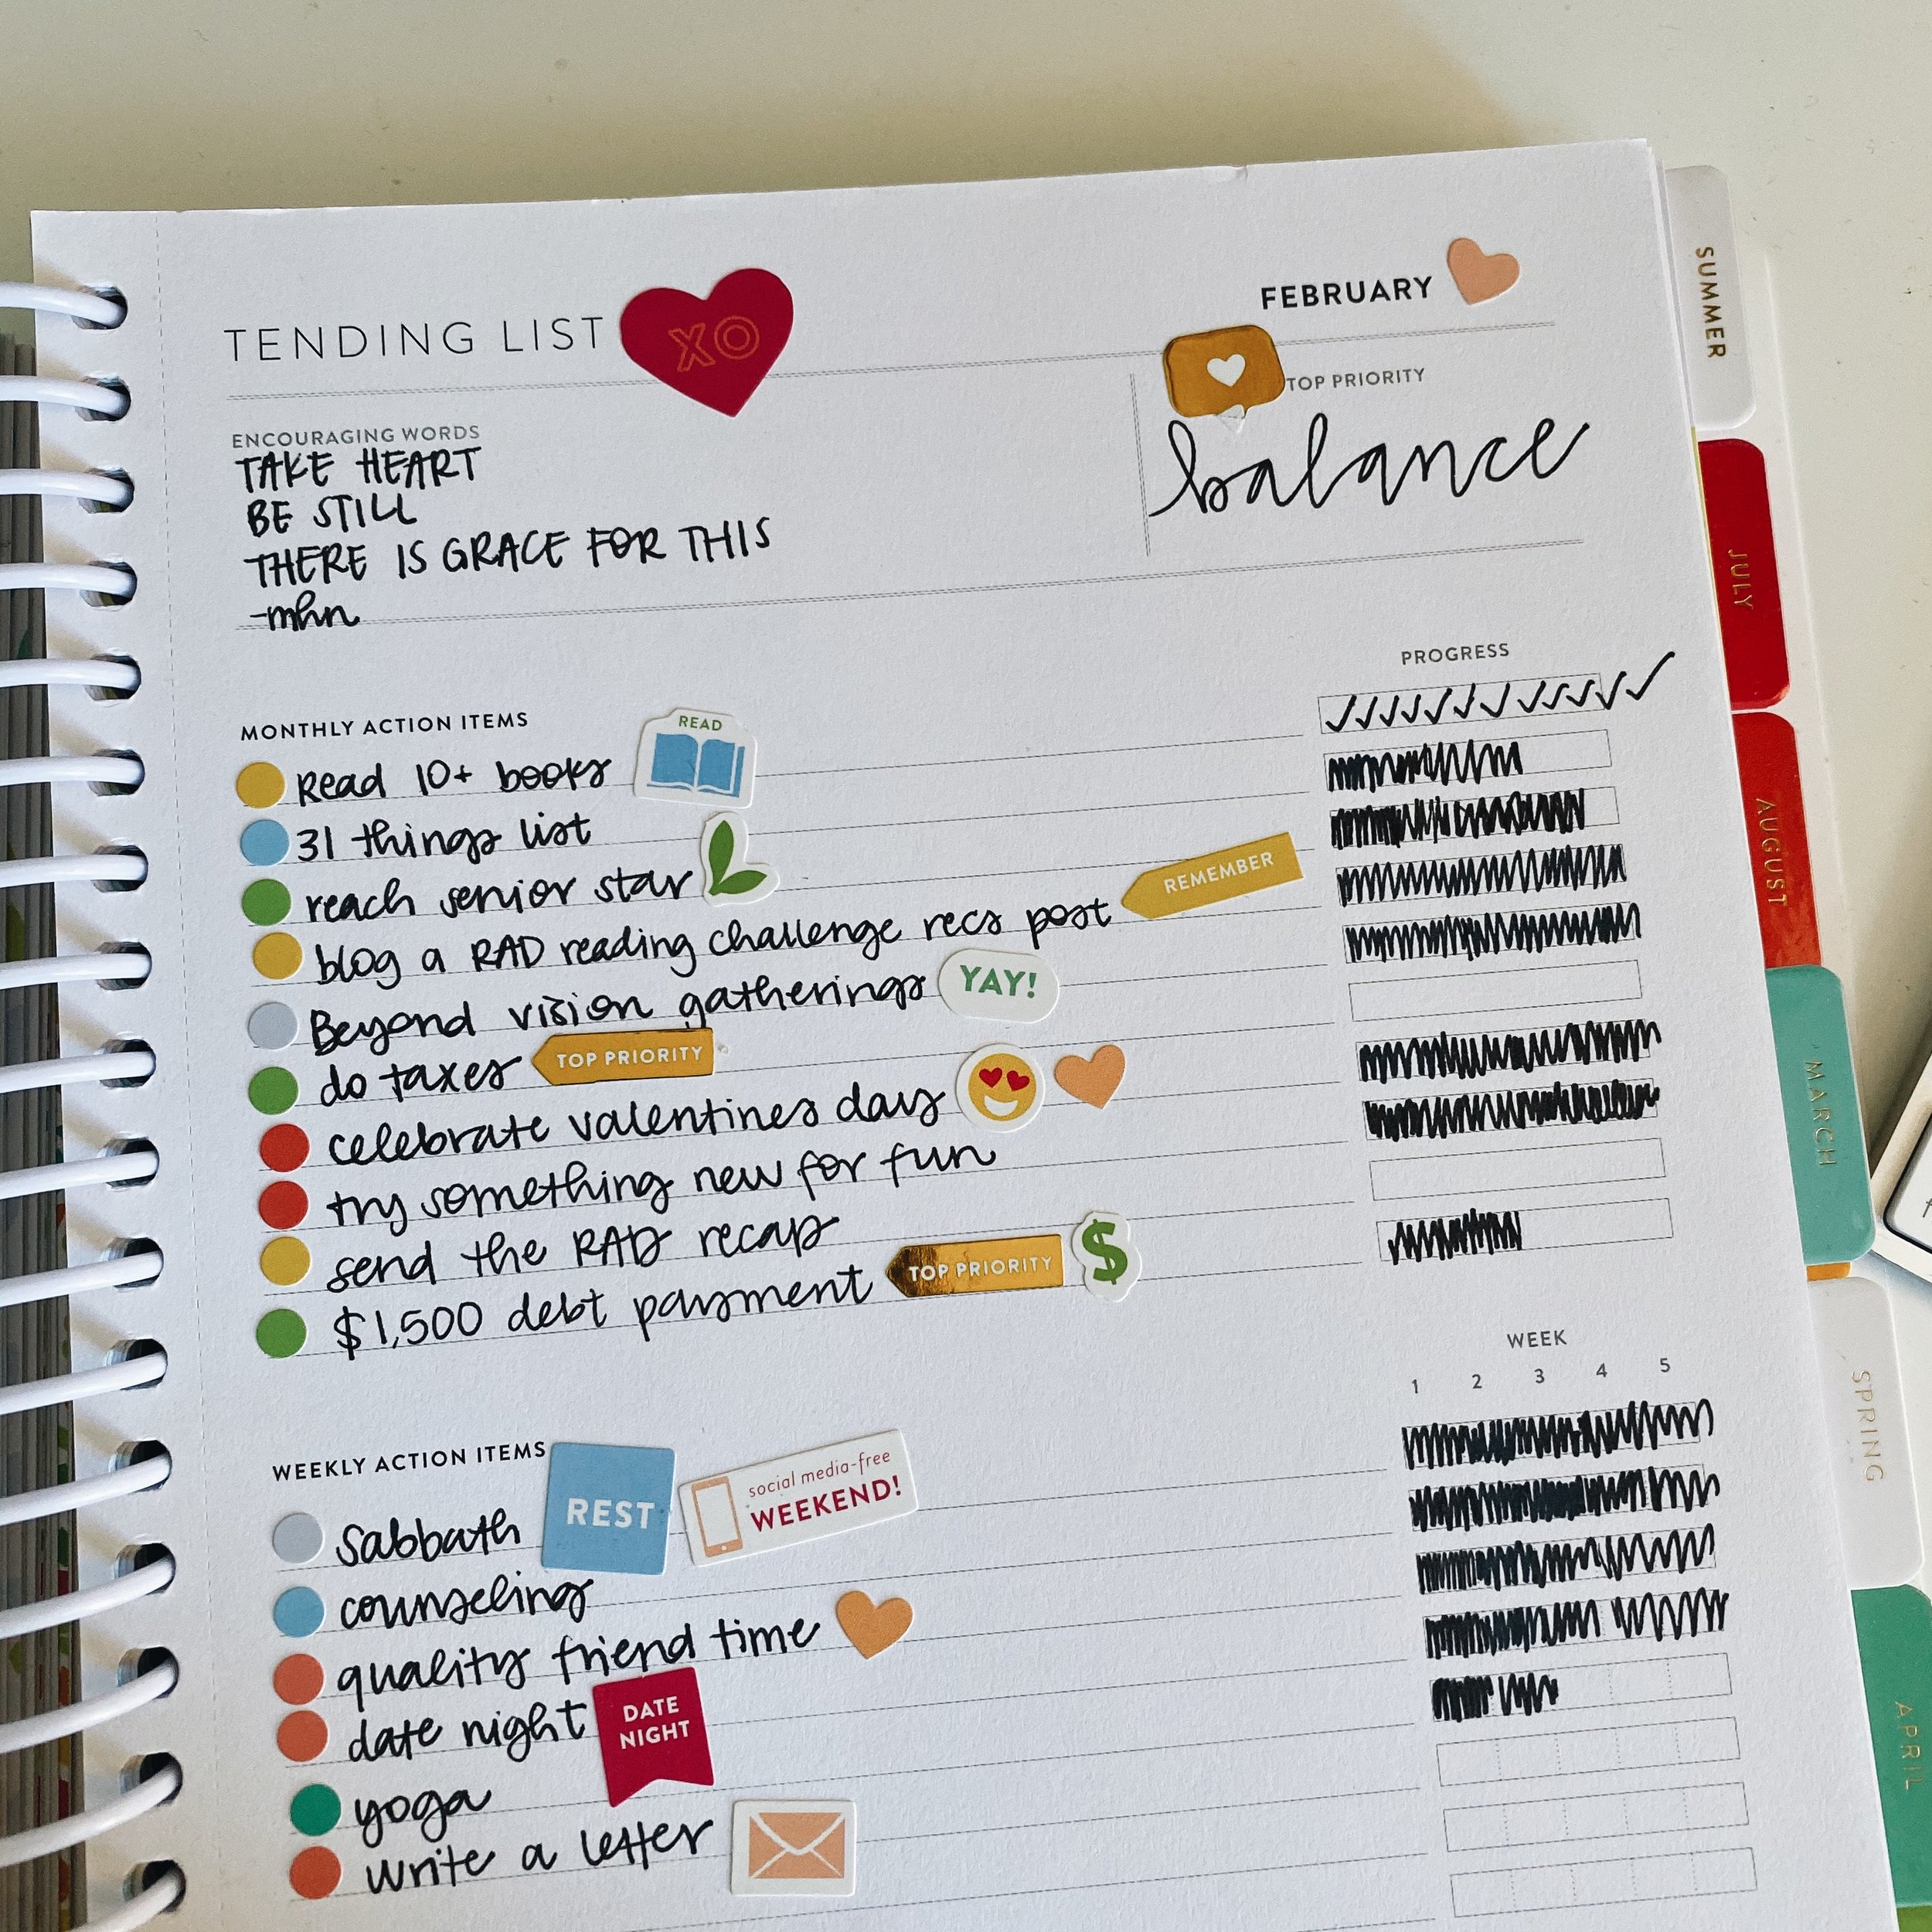 TENDING LIST
XO
FEBRUARY
ENCOURAGING WORDS
TAKE HEART
BE STILL
THERE IS GRACE FOR THIS
-mhn
TOP PRIORITY
balance
MONTHLY ACTION ITEMS
PROGRESS
Read 10+ books
READ
31 things list
reach senior star
blog a RAD reading challenge recs post
REMEMBER
Beyond vision gatherings
YAY!
do taxes
TOP PRIORITY
celebrate valentines day
try something new for fun
send the RAD recap
$1,500 debt payment
TOP PRIORITY
$
WEEKLY ACTION ITEMS
WEEK
1 2 3 4 5
Sabbath
REST
social media-free
WEEKEND!
counseling
quality friend time
date night
DATE
NIGHT
yoga
write a letter
SUMMER
JULY
AUGUST
MARCH
SPRING
APRIL